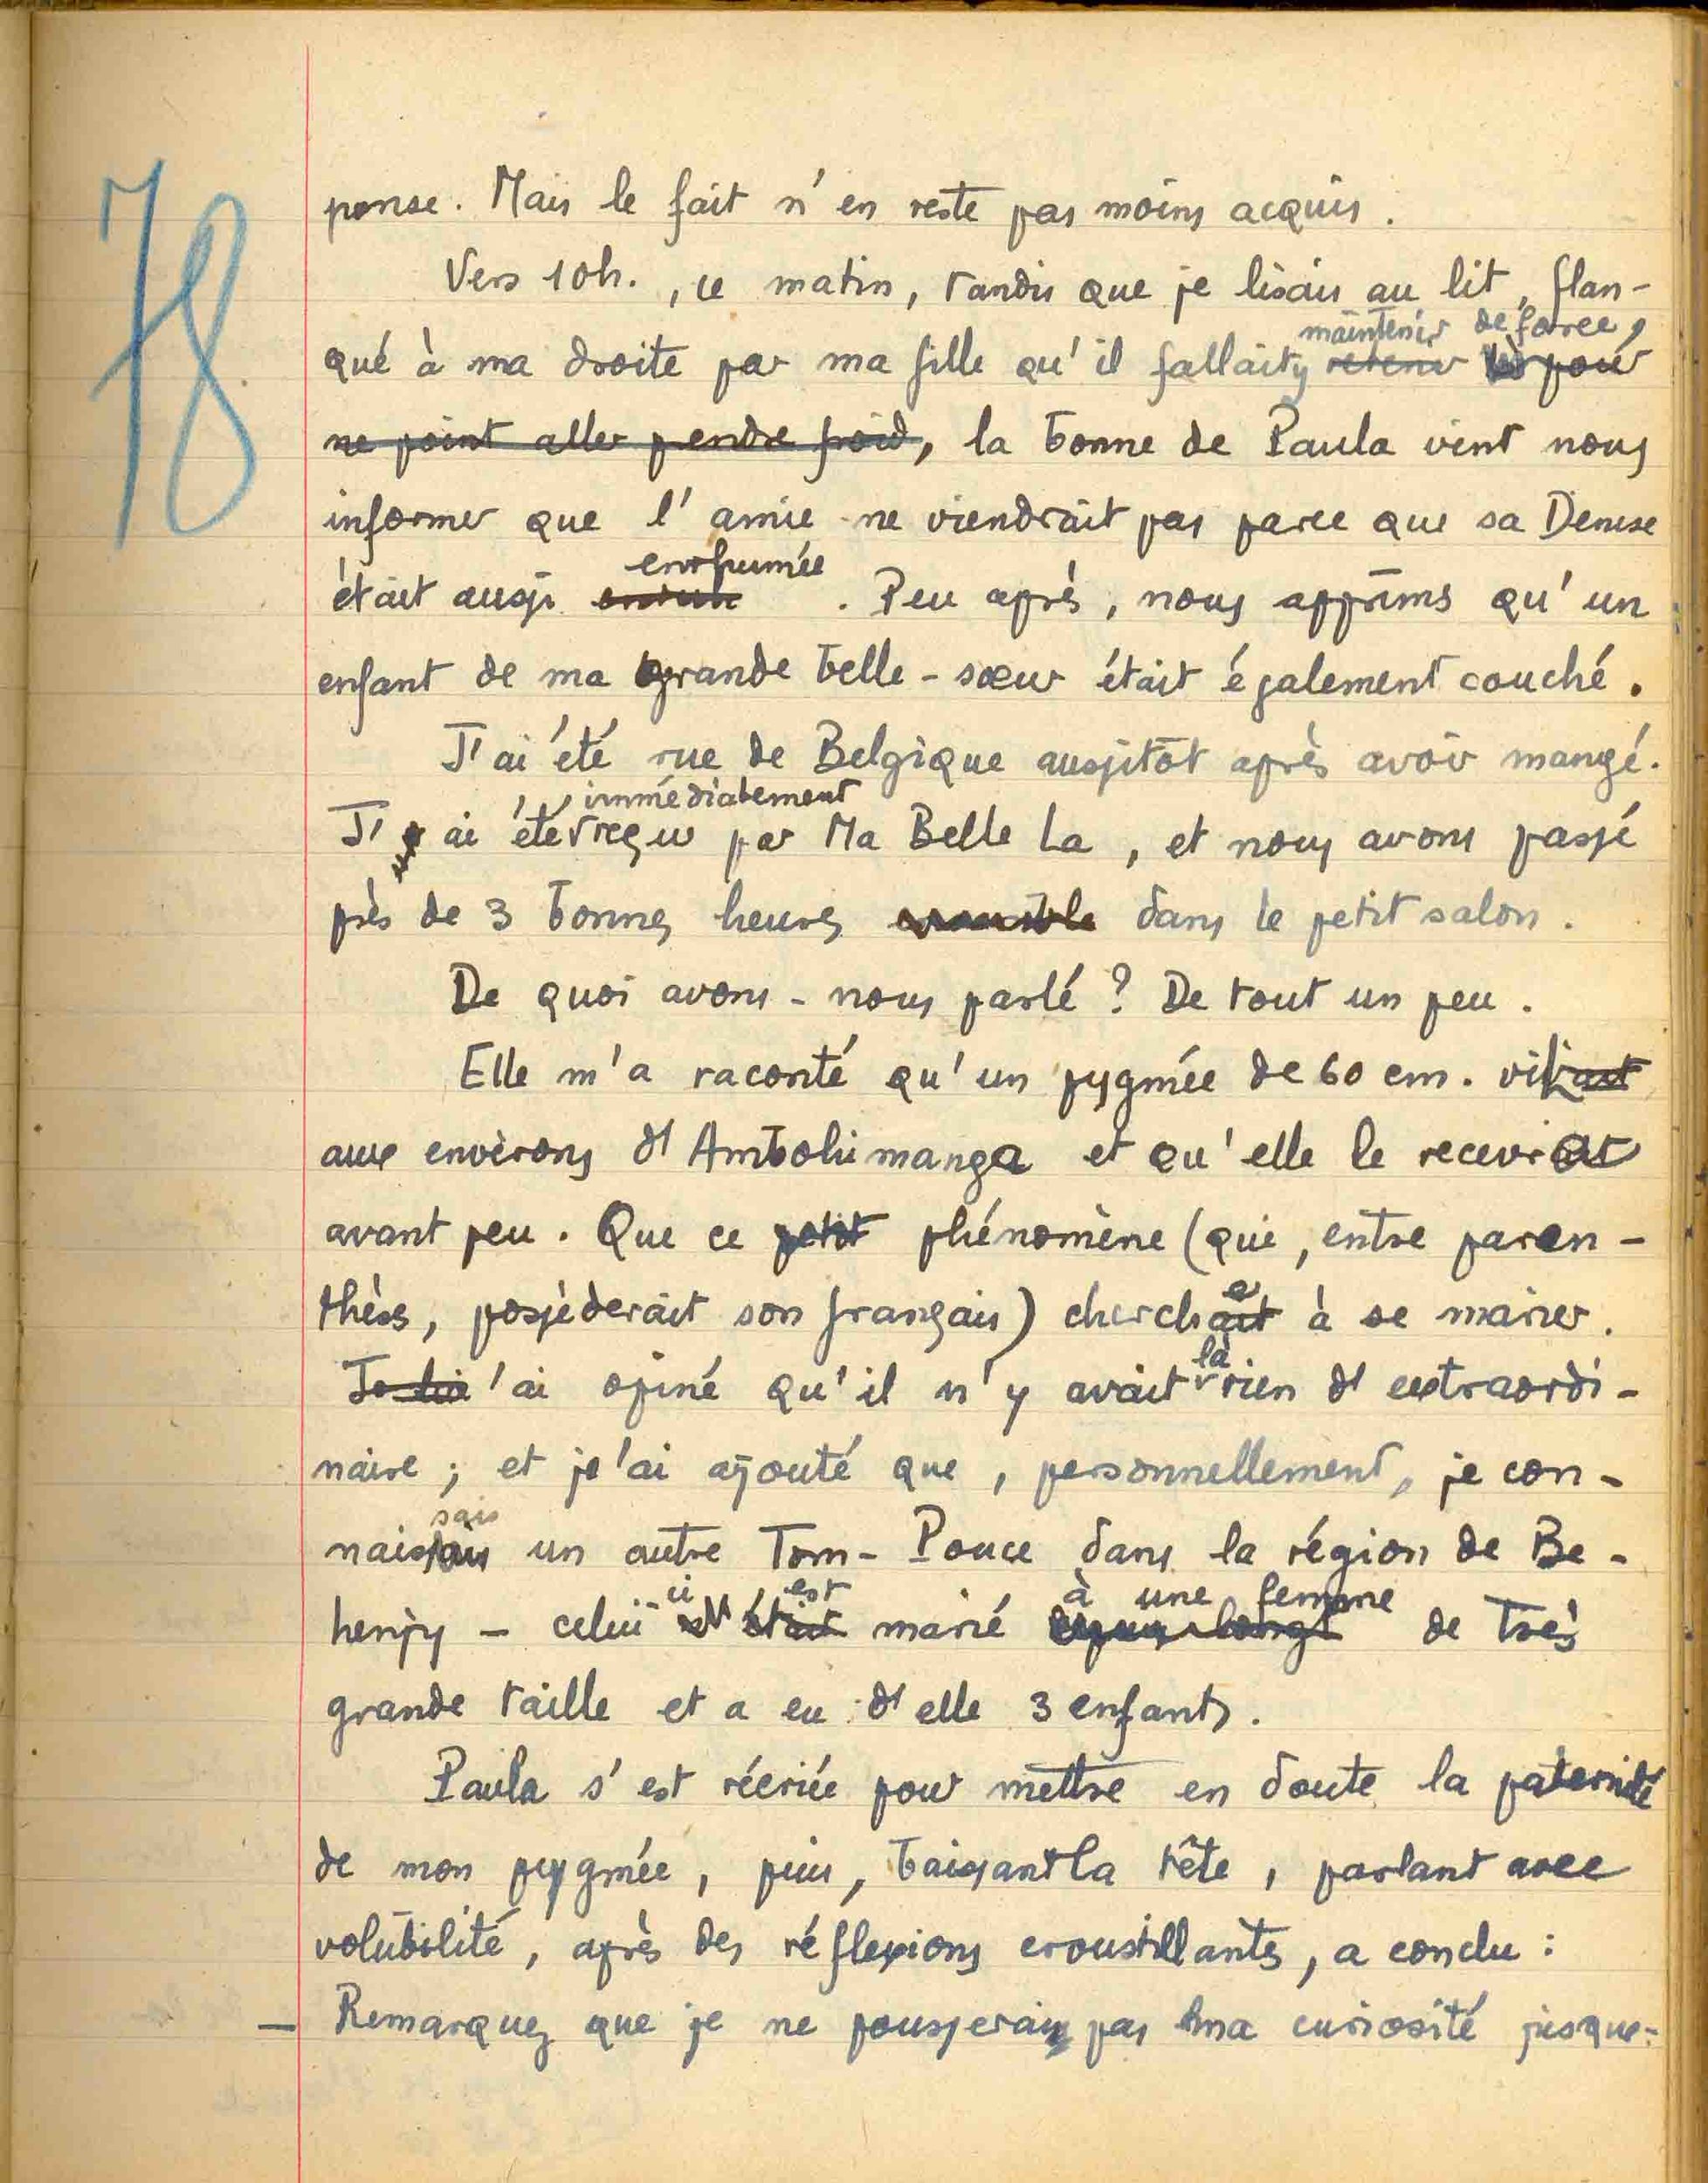 78
ponse. Mais le fait n'en reste pas moins acquis.
Vers 10h., ce matin, tandis que je lisais au lit, flan-
maintenir de force,
qué à ma droite par ma fille qu'il fallait retenir pour
ne point aller prendre froid, la bonne de Paula vint nous
informer que l'amie ne viendrait pas parce que sa Denise
enrhumée
était aussi . Peu après, nous apprîmes qu'un
enfant de ma grande belle-sœur était également couché.
J'ai été rue de Belgique aussitôt après avoir mangé.
immédiatement
J'ai été reçu par Ma Belle La, et nous avons passé
près de 3 bonnes heures ensemble dans le petit salon.
De quoi avons-nous parlé ? De tout un peu.
Elle m'a raconté qu'un pygmée de 60 cm. vit
aux environs d'Ambohimanga et qu'elle le recevrait
avant peu. Que ce petit phénomène (qui, entre paren-
thèses, possèderait son français) cherchait à se marier.
e
là
Je lui 'ai opiné qu'il n'y avait rien d'extraordi-
naire ; et je'ai ajouté que, personnellement, je con-
sais
naissais un autre Tom-Pouce dans la région de Be-
ci est à une femme
henjy - celui était marié de très
grande taille et a eu d'elle 3 enfants.
Paula s'est récriée pour mettre en doute la paternité
de mon pygmée, puis, baissant la tête, parlant avec
volubilité, après des réflexions croustillantes, a conclu :
— Remarquez que je ne pousserais pas ma curiosité jusque-